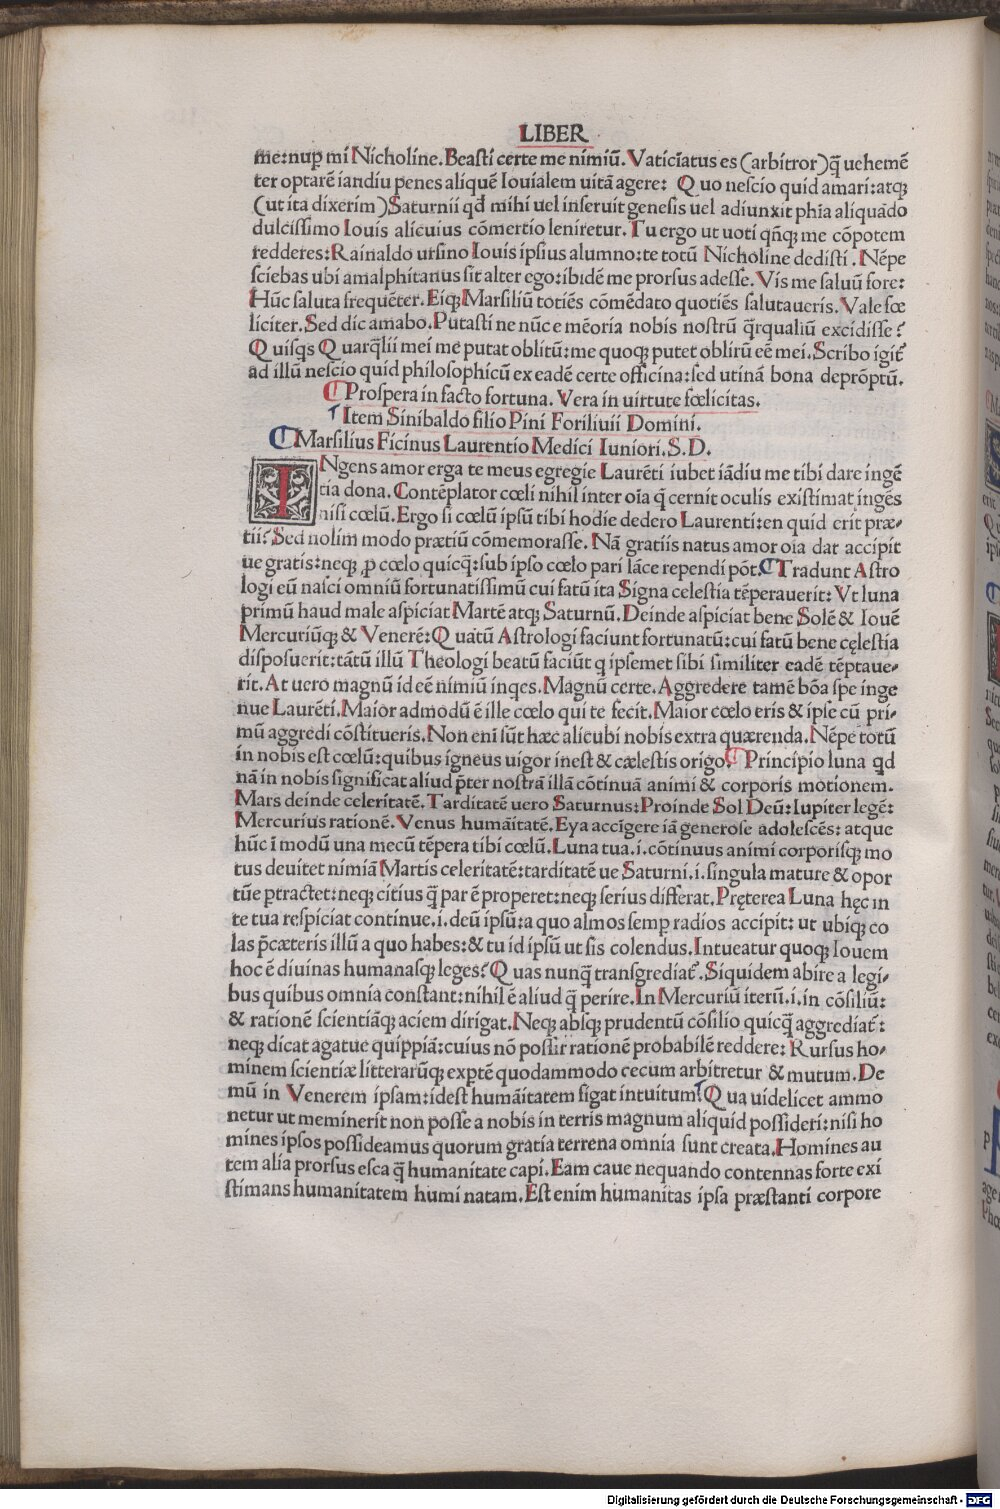 LIBER
me:nup̲ mi Nicholine. Beasti certe me nimiũ. Vaticĩatus es (arbitror) q̃ uehemẽ
ter optarẽ iandiu penes aliquẽ Iouialem uitã agere: Quo nescio quid amari:atqꝫ
(ut ita dixerim) Saturnii qd̃ mihi uel inseruit genesis uel adiunxit phia aliquãdo
dulcissimo Iouis alicuius cõmertio leniretur. Tu ergo ut uoti qñqꝫ me cõpotem
redderes: Rainaldo ursino Iouis ipsius alumno:te totũ Nicholine dedisti. Nẽpe
sciebas ubi amalphitanus sit alter ego:ibidẽ me prorsus adesse. Vis me saluũ fore:
Hũc saluta frequẽter. Eiqꝫ Marsiliũ totiẽs cõmẽdato quotiẽs salutaueris. Vale fœ
liciter. Sed dic amabo. Putasti ne nũc e mẽoria nobis nostrũ q̃rqualiũ excidisse?
Quisqs Quarq̃lii mei me putat oblitũ:me quoqꝫ putet oblitũ eẽ mei. Scribo igit̃
ad illũ nescio quid philosophicũ ex eadẽ certe officina:sed utinã bona deprõptũ.
¶ Prospera in facto fortuna. Vera in uirtute fœlicitas.
Item Sinibaldo filio Pini Foriliuii Domini.
¶ Marsilius Ficinus Laurentio Medici Iuniori. S. D.
INgens amor erga te meus egregie Laurẽti iubet iãdiu me tibi dare ingẽ
tia dona. Contẽplator cœli nihil inter oĩa q̃ cernit oculis existimat ingẽs
nisi cœlũ. Ergo si cœlũ ipsũ tibi hodie dedero Laurenti:en quid erit præ-
tii? Sed nolim modo prætiũ cõmemorasse. Nã gratiis natus amor oĩa dat accipit
ue gratis:neqꝫ ꝓ cœlo quicq̃:sub ipso cœlo pari lãce rependi põt. ¶ Tradunt Astro
logi eũ nasci omniũ fortunatissimũ cui fatũ ita Signa celestia tẽperauerit: Vt luna
primũ haud male aspiciat Martẽ atqꝫ Saturnũ. Deinde aspiciat bene Solẽ & Iouẽ
Mercuriũqꝫ & Venerẽ: Quãtũ Astrologi faciunt fortunatũ:cui fatũ bene cęlestia
disposuerit:tãtũ illũ Theologi beatũ faciũt q ipsemet sibi similiter eadẽ tẽptaue-
rit. At uero magnũ id eẽ nimiũ inqes. Magnũ certe. Aggredere tamẽ bõa spe inge
nue Laurẽti. Maior admodũ ẽ ille cœlo qui te fecit. Maior cœlo eris & ipse cũ pri-
mũ aggredi cõstitueris. Non enĩ sũt hæc alicubi nobis extra quærenda. Nẽpe totũ
in nobis est cœlũ:quibus igneus uigor inest & cælestis origo. ¶ Principio luna qd
nã in nobis significat aliud p̃ter nostrã illã cõtinuã animi & corporis motionem.
Mars deinde celeritatẽ. Tarditatẽ uero Saturnus: Proinde Sol Deũ: Iupiter legẽ:
Mercurius rationẽ. Venus humãitatẽ. Eya accĩgere iã generose adolescẽs: atque
hũc ĩ modũ una mecũ tẽpera tibi cœlũ. Luna tua.i.cõtinuus animi corporisqꝫ mo
tus deuitet nimiã Martis celeritatẽ:tarditatẽ ue Saturni.i.singula mature & opor
tũe ptractet:neqꝫ citius q̃ par ẽ properet:neqꝫ serius differat. Pręterea Luna hęc in
te tua respiciat continue.i.deũ ipsũ:a quo almos semp radios accipit: ut ubiqꝫ co
las p̃cæteris illũ a quo habes:& tu id ipsũ ut sis colendus. Intueatur quoqꝫ Iouem
hoc ẽ diuinas humanasqꝫ leges? Quas nunq̃ transgrediat̃. Siquidem abire a legi-
bus quibus omnia constant:nihil ẽ aliud q̃ perire. In Mercuriũ iterũ.i.in cõsiliũ:
& rationẽ scientiãqꝫ aciem dirigat. Neqꝫ absqꝫ prudentũ cõsilio quicq̃ aggrediat̃:
neqꝫ dicat agatue quippiã:cuius nõ possit rationẽ probabilẽ reddere: Rursus ho-
minem scientiæ litterarũqꝫ exptẽ quodammodo cecum arbitretur & mutum. De
mũ in Venerem ipsam:idest humãitatem figat intuitum. Qua uidelicet ammo
netur ut meminerit non posse a nobis in terris magnum aliquid possideri:nisi ho
mines ipsos possideamus quorum gratia terrena omnia sunt creata. Homines au
tem alia prorsus esca q̃ humanitate capi. Eam caue nequando contennas forte exi
stimans humanitatem humi natam. Est enim humanitas ipsa præstanti corpore
Digitalisierung gefördert durch die Deutsche Forschungsgemeinschaft - DFG